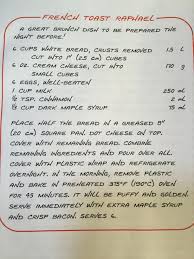 FRENCH TOAST RAPHAEL
A GREAT BRUNCH DISH TO BE PREPARED THE
NIGHT BEFORE!
6 CUPS WHITE BREAD, CRUSTS REMOVED 1.5 L
CUT INTO 1" (2.5 CM) CUBES
6 OZ. CREAM CHEESE, CUT INTO 170 g
SMALL CUBES
6 EGGS, WELL-BEATEN
1 CUP MILK 250 mL
1/2 TSP. CINNAMON 2 mL
1/3 CUP DARK MAPLE SYRUP 75 mL
PLACE HALF THE BREAD IN A GREASED 8"
(20 CM) SQUARE PAN. DOT CHEESE ON TOP.
COVER WITH REMAINING BREAD. COMBINE
REMAINING INGREDIENTS AND POUR OVER ALL.
COVER WITH PLASTIC WRAP AND REFRIGERATE
OVERNIGHT. IN THE MORNING, REMOVE PLASTIC
AND BAKE IN PREHEATED 375°F (190°C) OVEN
FOR 45 MINUTES. IT WILL BE PUFFY AND GOLDEN.
SERVE IMMEDIATELY WITH EXTRA MAPLE SYRUP
AND CRISP BACON. SERVES 6.